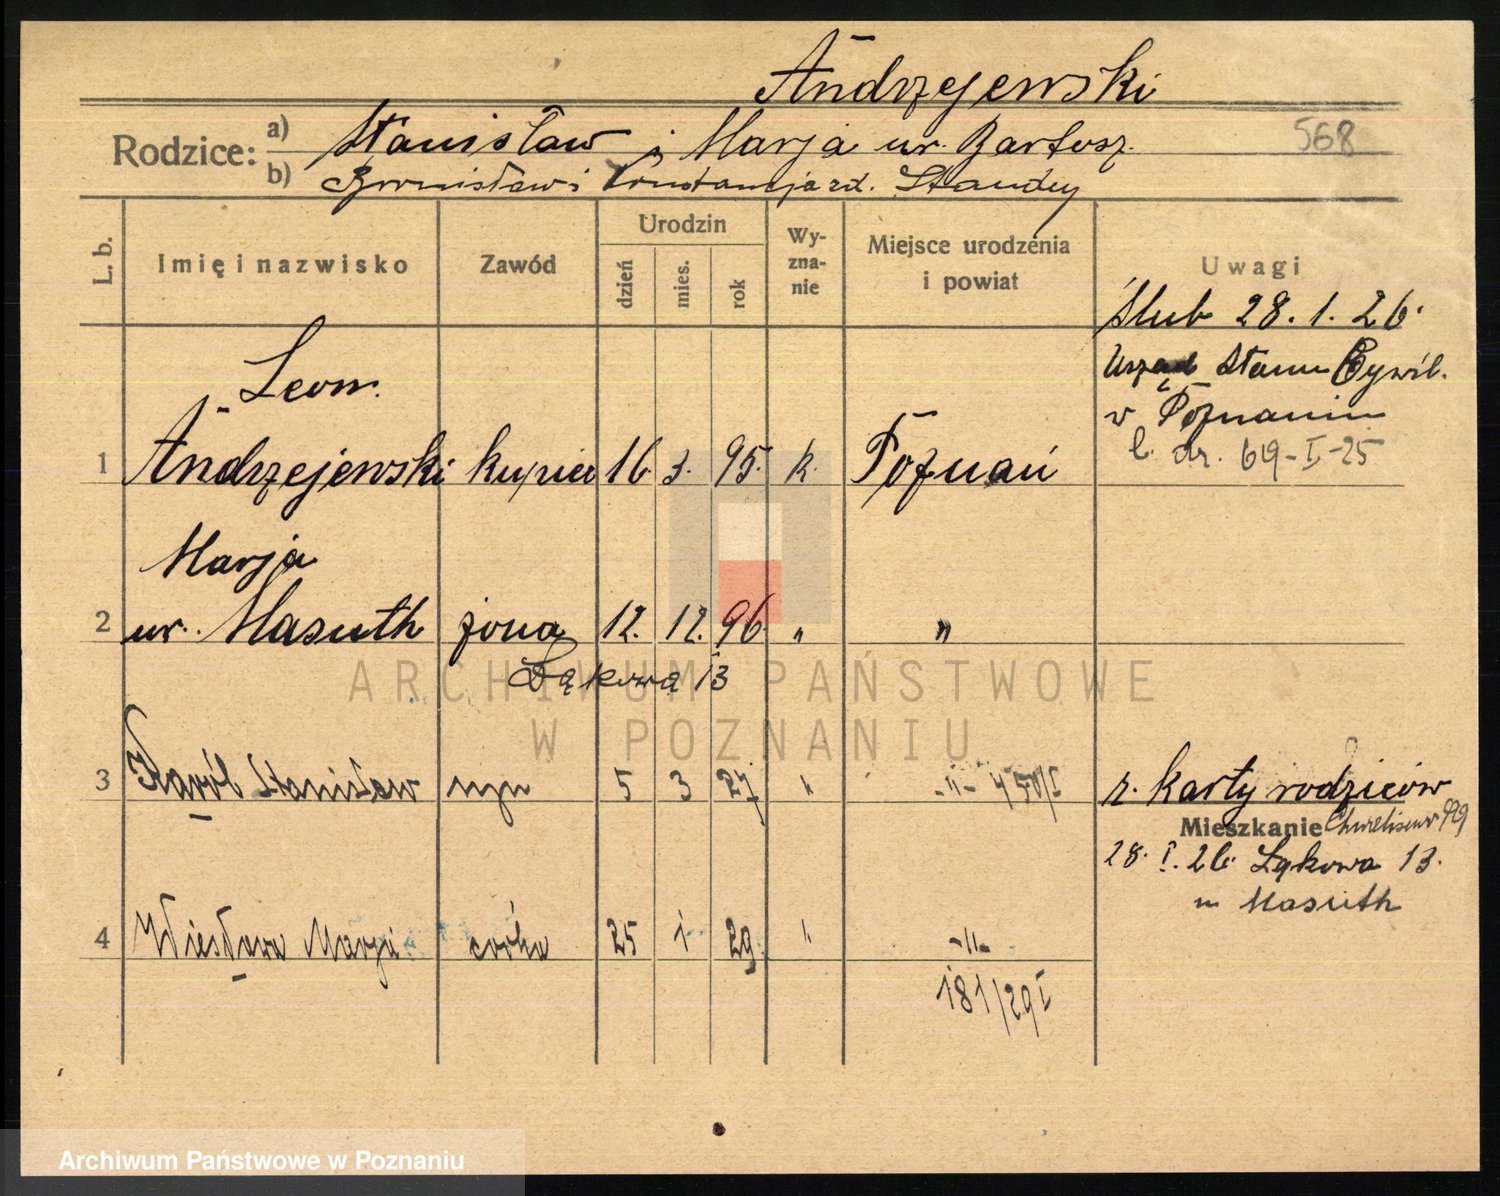 Andrzejewski
Rodzice:
a) Stanisław i Marja ur. Bartosz.
b) Bronisław i Konstancja zd. Standy
568
L. b.
Imię i nazwisko
Zawód
Urodzin
dzień
mies.
rok
Wy-
zna-
nie
Miejsce urodzenia
i powiat
Uwagi
Ślub 28. 1. 26.
Urząd Stanu Cywil.
w Poznaniu
l. dz. 619-I-25
Leon
1 Andrzejewski kupiec 16. 3. 95. k. Poznań
Marja
2 ur. Masuth żona 12. 12. 96. " "
Łąkowa 13
3 Karól Stanisław syn 5 3 27 " -"- 450/I
z. karty rodziców
Mieszkanie
28. I. 26. Łąkowa 13.
u Masuth
4 Wiesława Marja córka 25 1 29 " -"-
181/29 I
ARCHIWUM PAŃSTWOWE
W POZNANIU
Archiwum Państwowe w Poznaniu